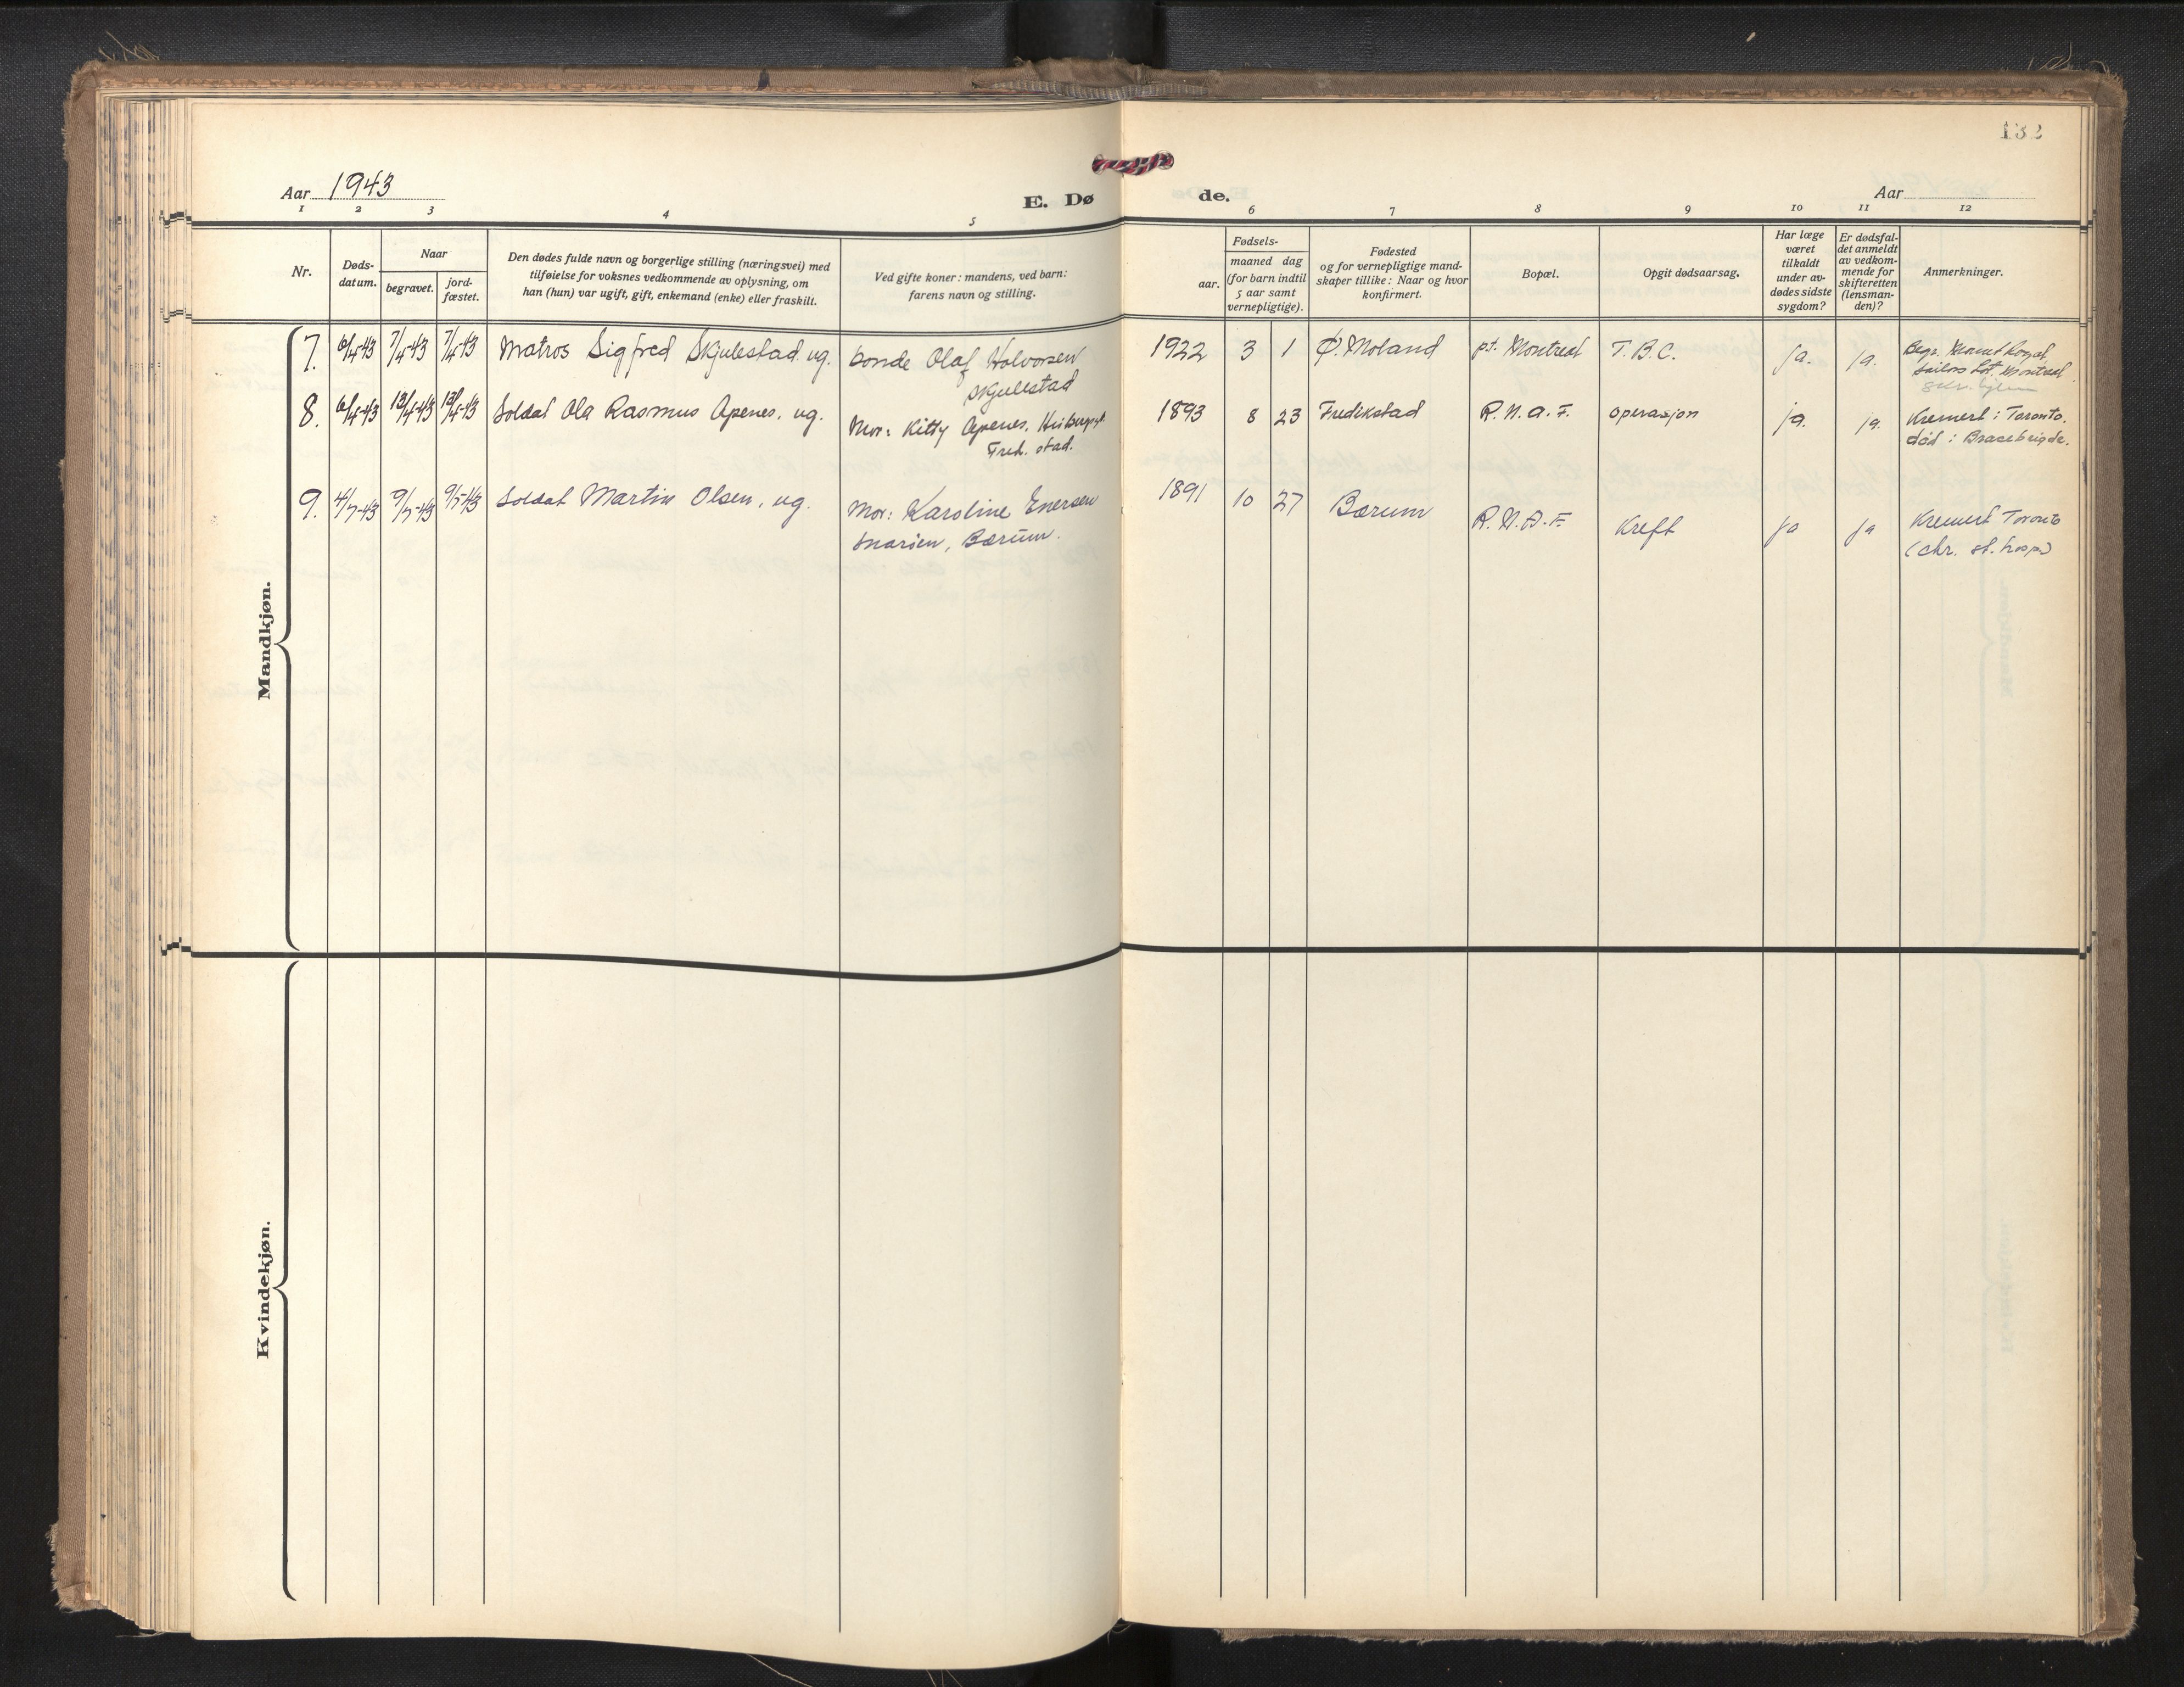 132
Aar 1943
E. Dø
de.
Aar
1 2 3 4 5 6 7 8 9 10 11 12
Nr.
Døds-
datum.
Naar
begravet.
jord-
fæstet.
Den dødes fulde navn og borgerlige stilling (næringsvei) med
tilføielse for voksnes vedkommende av oplysning, om
han (hun) var ugift, gift, enkemand (enke) eller fraskilt.
Ved gifte koner: mandens, ved barn:
farens navn og stilling.
Fødsels-
aar.
maaned dag
(for barn indtil
5 aar samt
vernepligtige).
Fødested
og for vernepligtige mand-
skaper tillike: Naar og hvor
konfirmert.
Bopæl.
Opgit dødsaarsag.
Har læge
været
tilkaldt
under av-
dødes sidste
sygdom?
Er dødsfal-
det anmeldt
av vedkom-
mende for
skifteretten
(lensman-
den)?
Anmerkninger.
Mandkjøn.
7. 6/4-43 7/4-43 7/4-43 Matros Sigfred Skjulestad. ug. bonde Olaf Halvorsen
Skjulestad
1922 3 1 Ø. Moland pt. Montreal T.B.C. ja. ja. Begr. Mount Royal,
Sailors Lot, Montreal.
8. 6/4-43 13/4-43 13/4-43 Soldat Ola Rasmus Apenes, ug. Mor: Kitty Apenes,
Fred. stad.
1893 8 23 Fredikstad R.N.A.F. operasjon ja. ja. Kremert i Toronto.
død i Bracebrigde.
9. 4/7-43 9/7-43 9/7-43 Soldat Martin Olsen, ug. Mor: Karoline Enersen
Snarøen, Bærum.
1891 10 27 Bærum R.N.A.F. Kreft ja ja Kremert Toronto
(chr. st. hosp.)
Kvindekjøn.